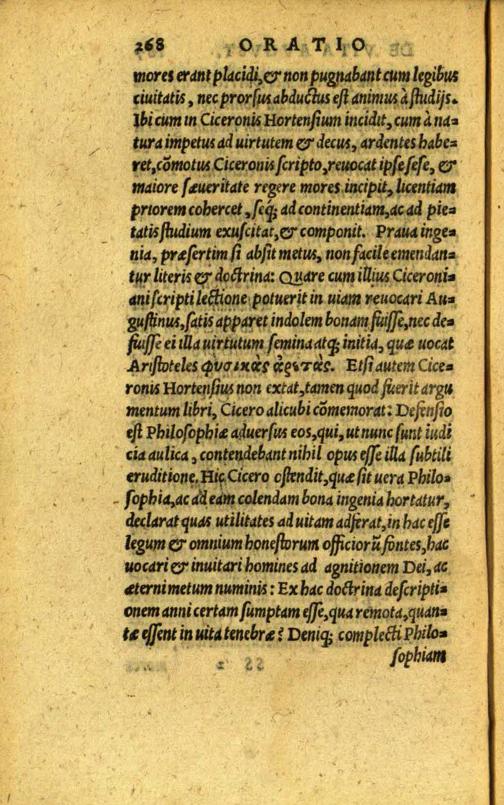 268 ORATIO
mores erant placidi, & non pugnabant cum legibus
ciuitatis, nec prorsus abductus est animus à studijs.
Ibi cum in Ciceronis Hortensium incidit, cum à na=
tura impetus ad uirtutem & decus, ardentes habe=
ret, cõmotus Ciceronis scripto, reuocat ipse sese, &
maiore sæueritate regere mores incipit, licentiam
priorem cohercet, seq; ad continentiam, ac ad pie=
tatis studium exuscitat, & componit. Praua inge=
nia, præsertim si absit metus, non facile emendan=
tur literis & doctrina: Quare cum illius Ciceroni=
ani scripti lectione potuerit in uiam reuocari Au=
gustinus, satis apparet indolem bonam fuisse, nec de=
fuisse ei illa uirtutum semina atq; initia, quæ uocat
Aristoteles φυσικὰς ἀρετὰς. Etsi autem Cice=
ronis Hortensius non extat, tamen quod fuerit argu
mentum libri, Cicero alicubi cõmemorat: Defensio
est Philosophiæ aduersus eos, qui, ut nunc sunt iudi
cia aulica, contendebant nihil opus esse illa subtili
eruditione. Hic Cicero ostendit, quæ sit uera Philo=
sophia, ac ad eam colendam bona ingenia hortatur,
declarat quas utilitates ad uitam adferat, in hac esse
legum & omnium honestorum officiorũ fontes, hac
uocari & inuitari homines ad agnitionem Dei, ac
æterni metum numinis: Ex hac doctrina descripti=
onem anni certam sumptam esse, qua remota, quan=
tæ essent in uita tenebræ? Deniq; complecti Philo=
sophiam